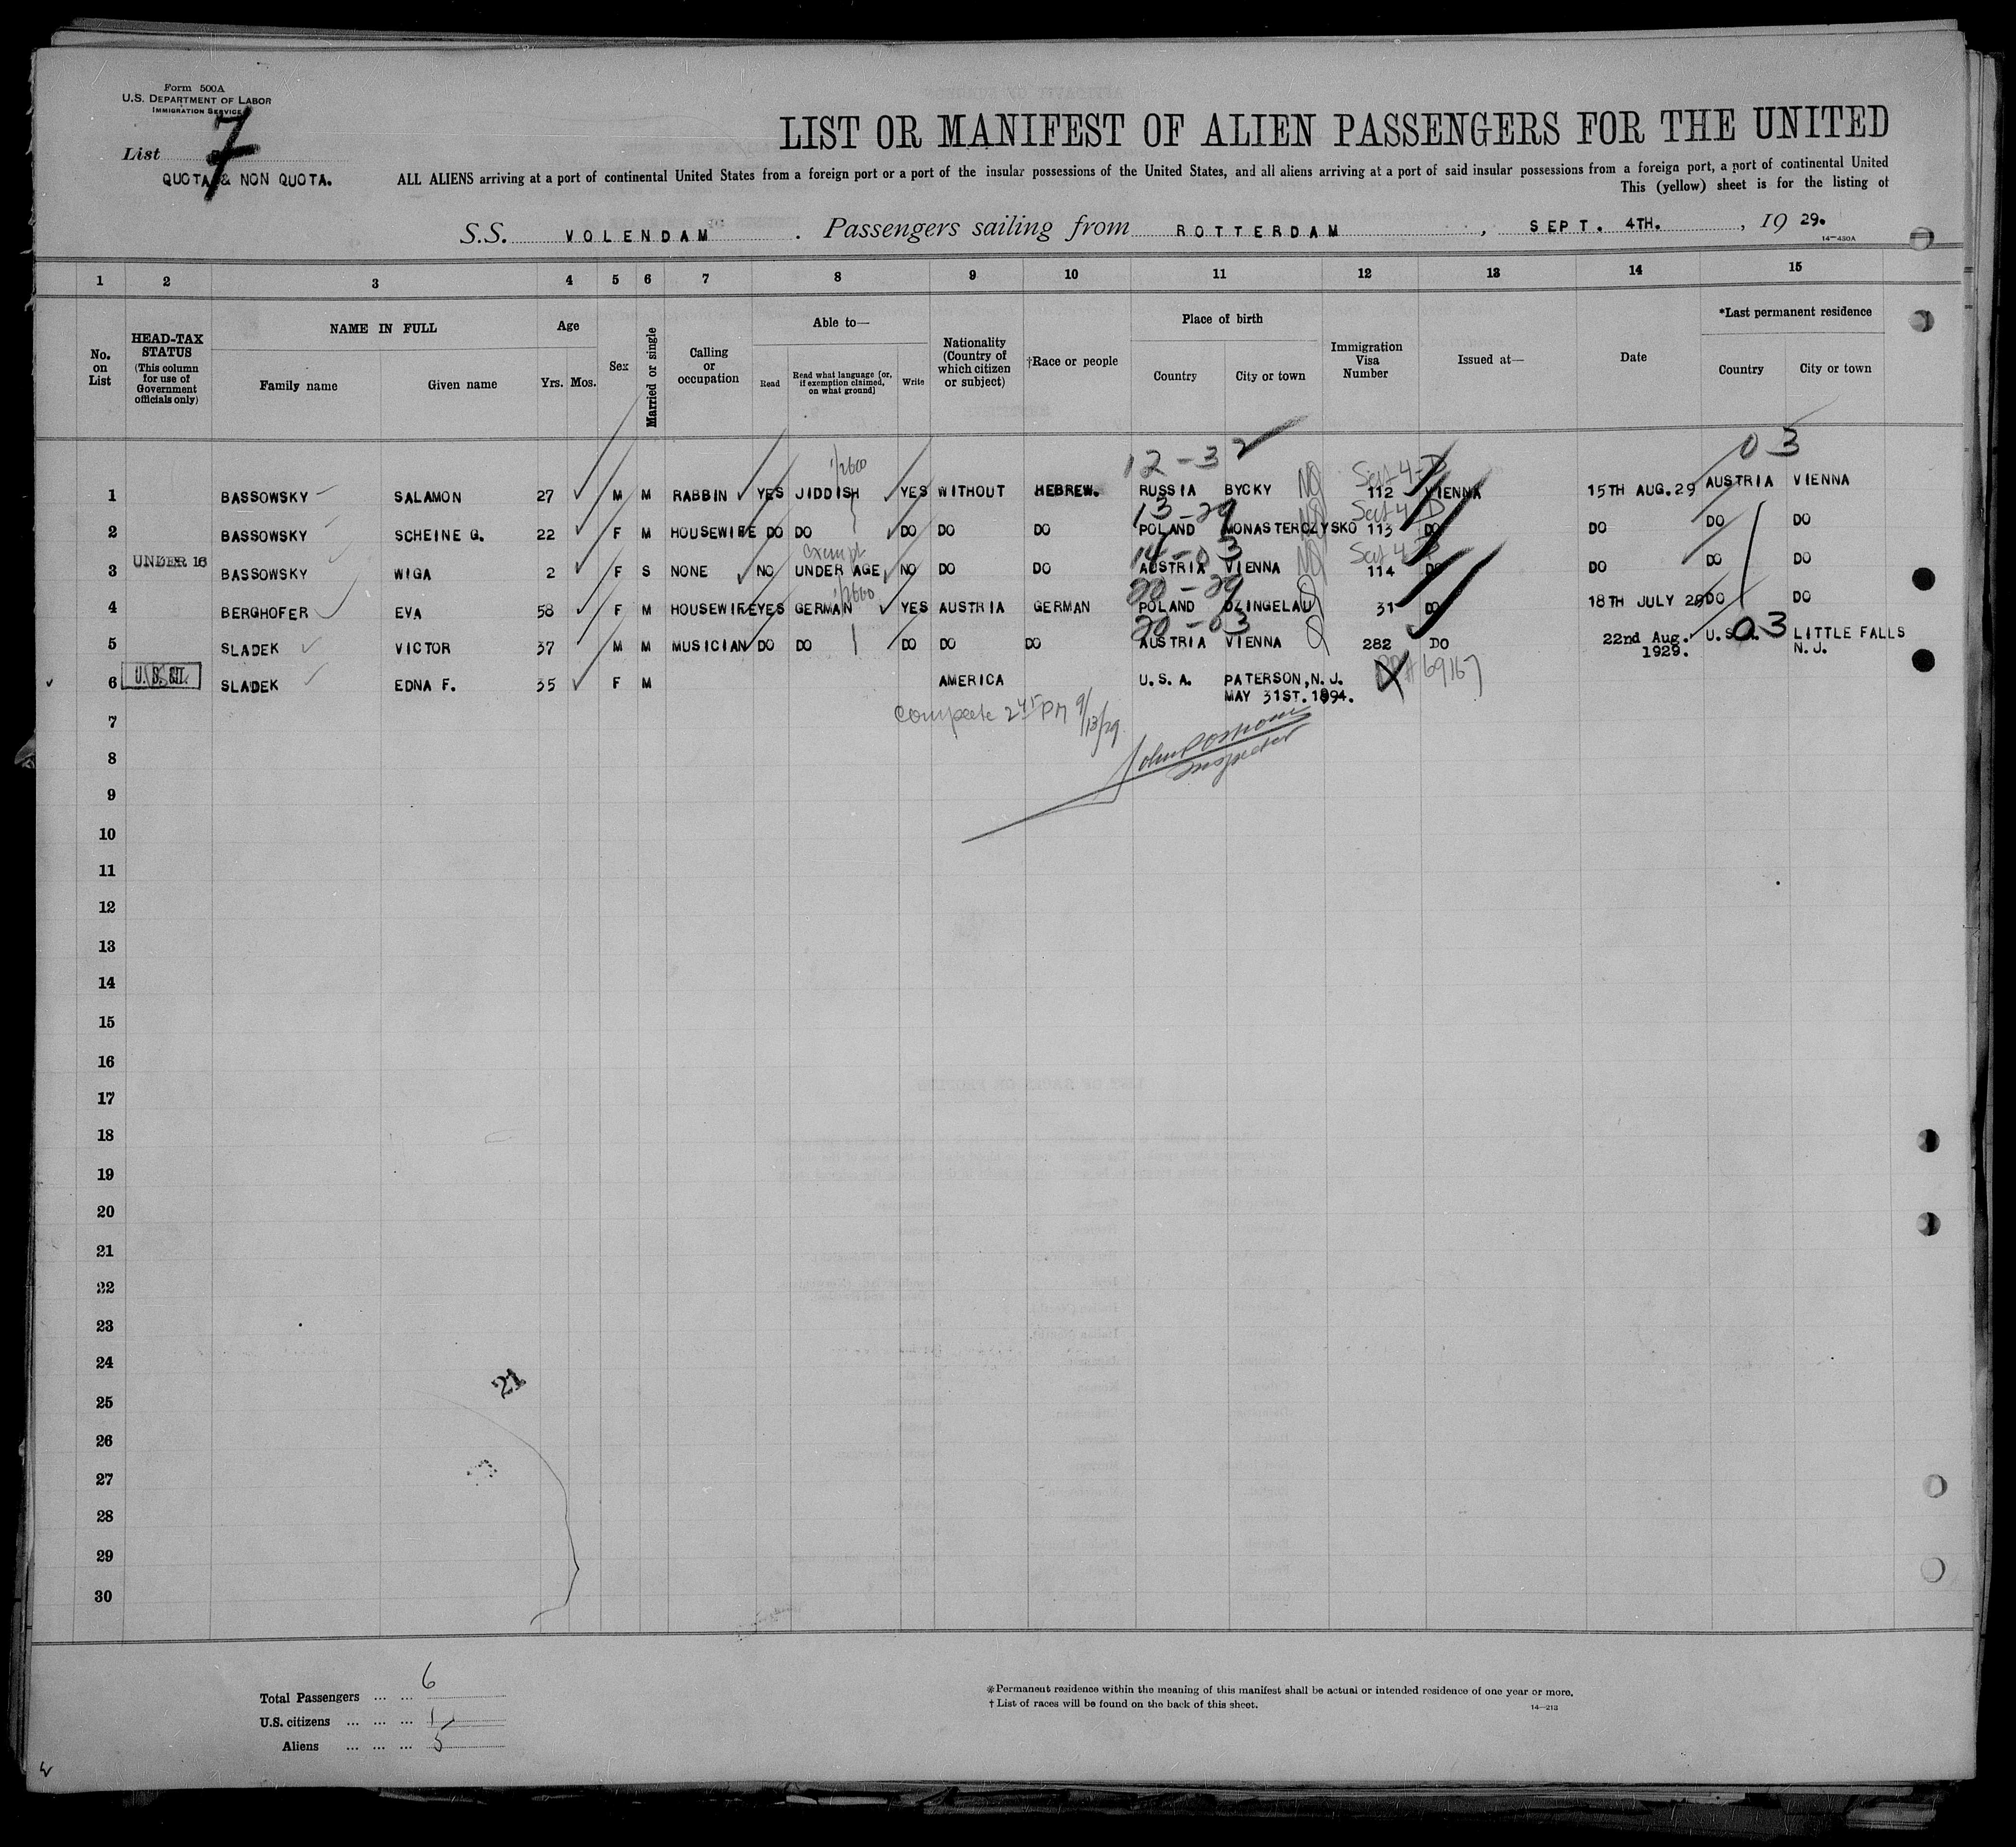 Form 500A
U.S. DEPARTMENT OF LABOR
IMMIGRATION SERVICE
List 7
QUOTA & NON QUOTA.
LIST OR MANIFEST OF ALIEN PASSENGERS FOR THE UNITED
ALL ALIENS arriving at a port of continental United States from a foreign port or a port of the insular possessions of the United States, and all aliens arriving at a port of said insular possessions from a foreign port, a port of continental United
This (yellow) sheet is for the listing of
S.S. VOLENDAM. Passengers sailing from ROTTERDAM, SEPT. 4TH., 19 29.
14—430A
1 2 3 4 5 6 7 8 9 10 11 12 13 14 15
No. on List
HEAD-TAX STATUS (This column for use of Government officials only)
NAME IN FULL
Family name Given name
Age
Yrs. Mos.
Sex
Married or single
Calling or occupation
Able to—
Read
Read what language (or, if exemption claimed, on what ground)
Write
Nationality (Country of which citizen or subject)
†Race or people
Place of birth
Country City or town
Immigration Visa Number
Issued at—
Date
*Last permanent residence
Country City or town
12-32 03
1/2600 Sept 4-D
1 BASSOWSKY SALAMON 27 M M RABBIN YES JIDDISH YES WITHOUT HEBREW. RUSSIA BYCKY NQ 112 VIENNA 15TH AUG.29 AUSTRIA VIENNA
13-29 Sept 4-D
2 BASSOWSKY SCHEINE G. 22 F M HOUSEWIFE DO DO DO DO DO POLAND MONASTERCZYSKO NQ 113 DO DO DO DO
UNDER 16 exempt 14-03 Sept 4-D
3 BASSOWSKY WIGA 2 F S NONE NO UNDER AGE NO DO DO AUSTRIA VIENNA NQ 114 DO DO DO DO
1/2600 20-29
4 BERGHOFER EVA 58 F M HOUSEWIFE YES GERMAN YES AUSTRIA GERMAN POLAND DZINGELAU Q 31 DO 18TH JULY 29 DO DO
20-03 03
5 SLADEK VICTOR 37 M M MUSICIAN DO DO DO DO DO AUSTRIA VIENNA Q 282 DO 22nd Aug. 1929. U.S.A. LITTLE FALLS N.J.
6 SLADEK EDNA F. 35 F M AMERICA U.S.A. PATERSON, N.J. 69167
MAY 31ST. 1894.
7
Complete 2 45 PM 9/13/29
8
Inspector
9
10
11
12
13
14
15
16
17
18
19
20
21
22
23
24
21
25
26
27
28
29
30
Total Passengers ... ... 6
U.S. citizens ... ... ... 1
Aliens ... ... ... 5
*Permanent residence within the meaning of this manifest shall be actual or intended residence of one year or more.
† List of races will be found on the back of this sheet.
14—213